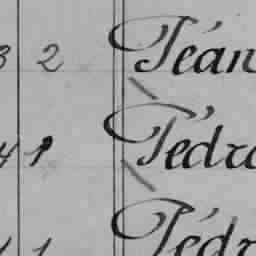 3 2 Jéan
4 1 Pédro
1 1 Pédr